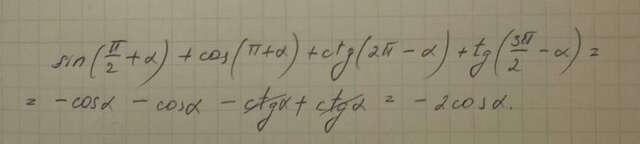 sin(π/2 + α) + cos(π+α) + ctg(2π − α) + tg(3π/2 − α) =
= − cosα − cosα − ctgα + ctgα = − 2cosα.